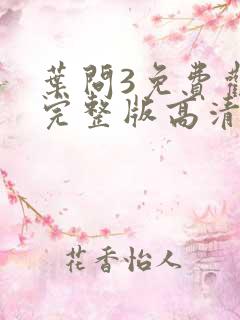 葉問3免費
完整版高清
花香怡人